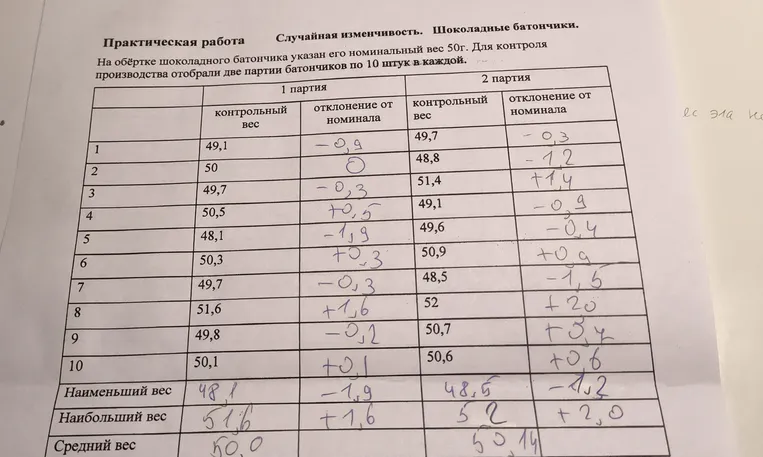 Практическая работа Случайная изменчивость. Шоколадные батончики.
На обёртке шоколадного батончика указан его номинальный вес 50г. Для контроля
производства отобрали две партии батончиков по 10 штук в каждой.
1 партия 2 партия
контрольный вес отклонение от номинала контрольный вес отклонение от номинала
1 49,1 -0,9 49,7 -0,3
2 50 0 48,8 -1,2
3 49,7 -0,3 51,4 +1,4
4 50,5 +0,5 49,1 -0,9
5 48,1 -1,9 49,6 -0,4
6 50,3 +0,3 50,9 +0,9
7 49,7 -0,3 48,5 -1,5
8 51,6 +1,6 52 +20
9 49,8 -0,2 50,7 +0,7
10 50,1 +0,1 50,6 +0,6
Наименьший вес 48,1 -1,9 48,5 -1,2
Наибольший вес 51,6 +1,6 52 +2,0
Средний вес 50,0 50,14